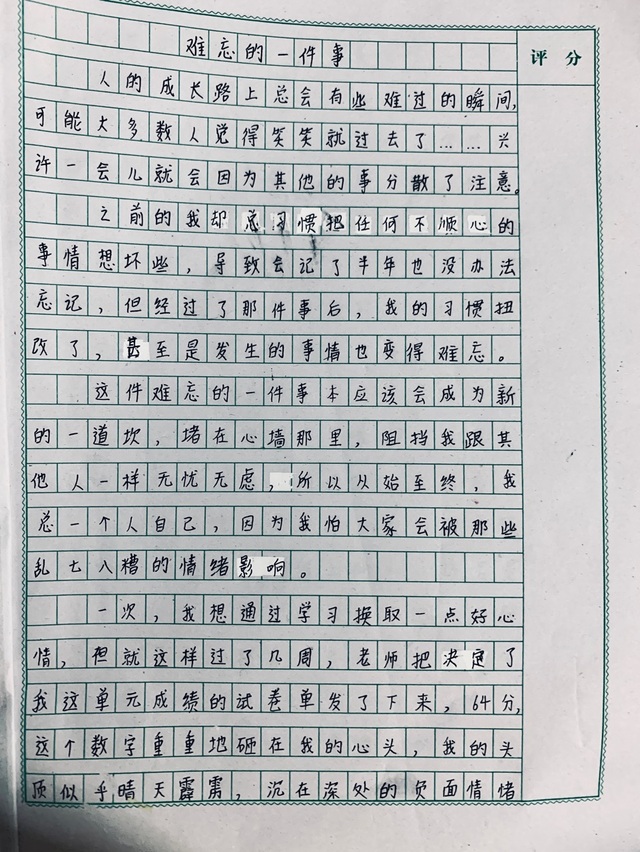 难忘的一件事
评分
人的成长路上总会有些难过的瞬间,
可能大多数人觉得笑笑就过去了……兴
许一会儿就会因为其他的事分散了注意。
之前的我却总习惯把任何不顺心的
事情想坏些，导致会记了半年也没办法
忘记，但经过了那件事后，我的习惯扭
改了，甚至是发生的事情也变得难忘。
这件难忘的一件事本应该会成为新
的一道坎，堵在心墙那里，阻挡我跟其
他人一样无忧无虑，所以从始至终，我
总一个人自己，因为我怕大家会被那些
乱七八糟的情绪影响。
一次，我想通过学习换取一点好心
情，但就这样过了几周，老师把决定了
我这单元成绩的试卷单发了下来，64分,
这个数字重重地砸在我的心头，我的头
顶似乎晴天霹雳，沉在深处的负面情绪